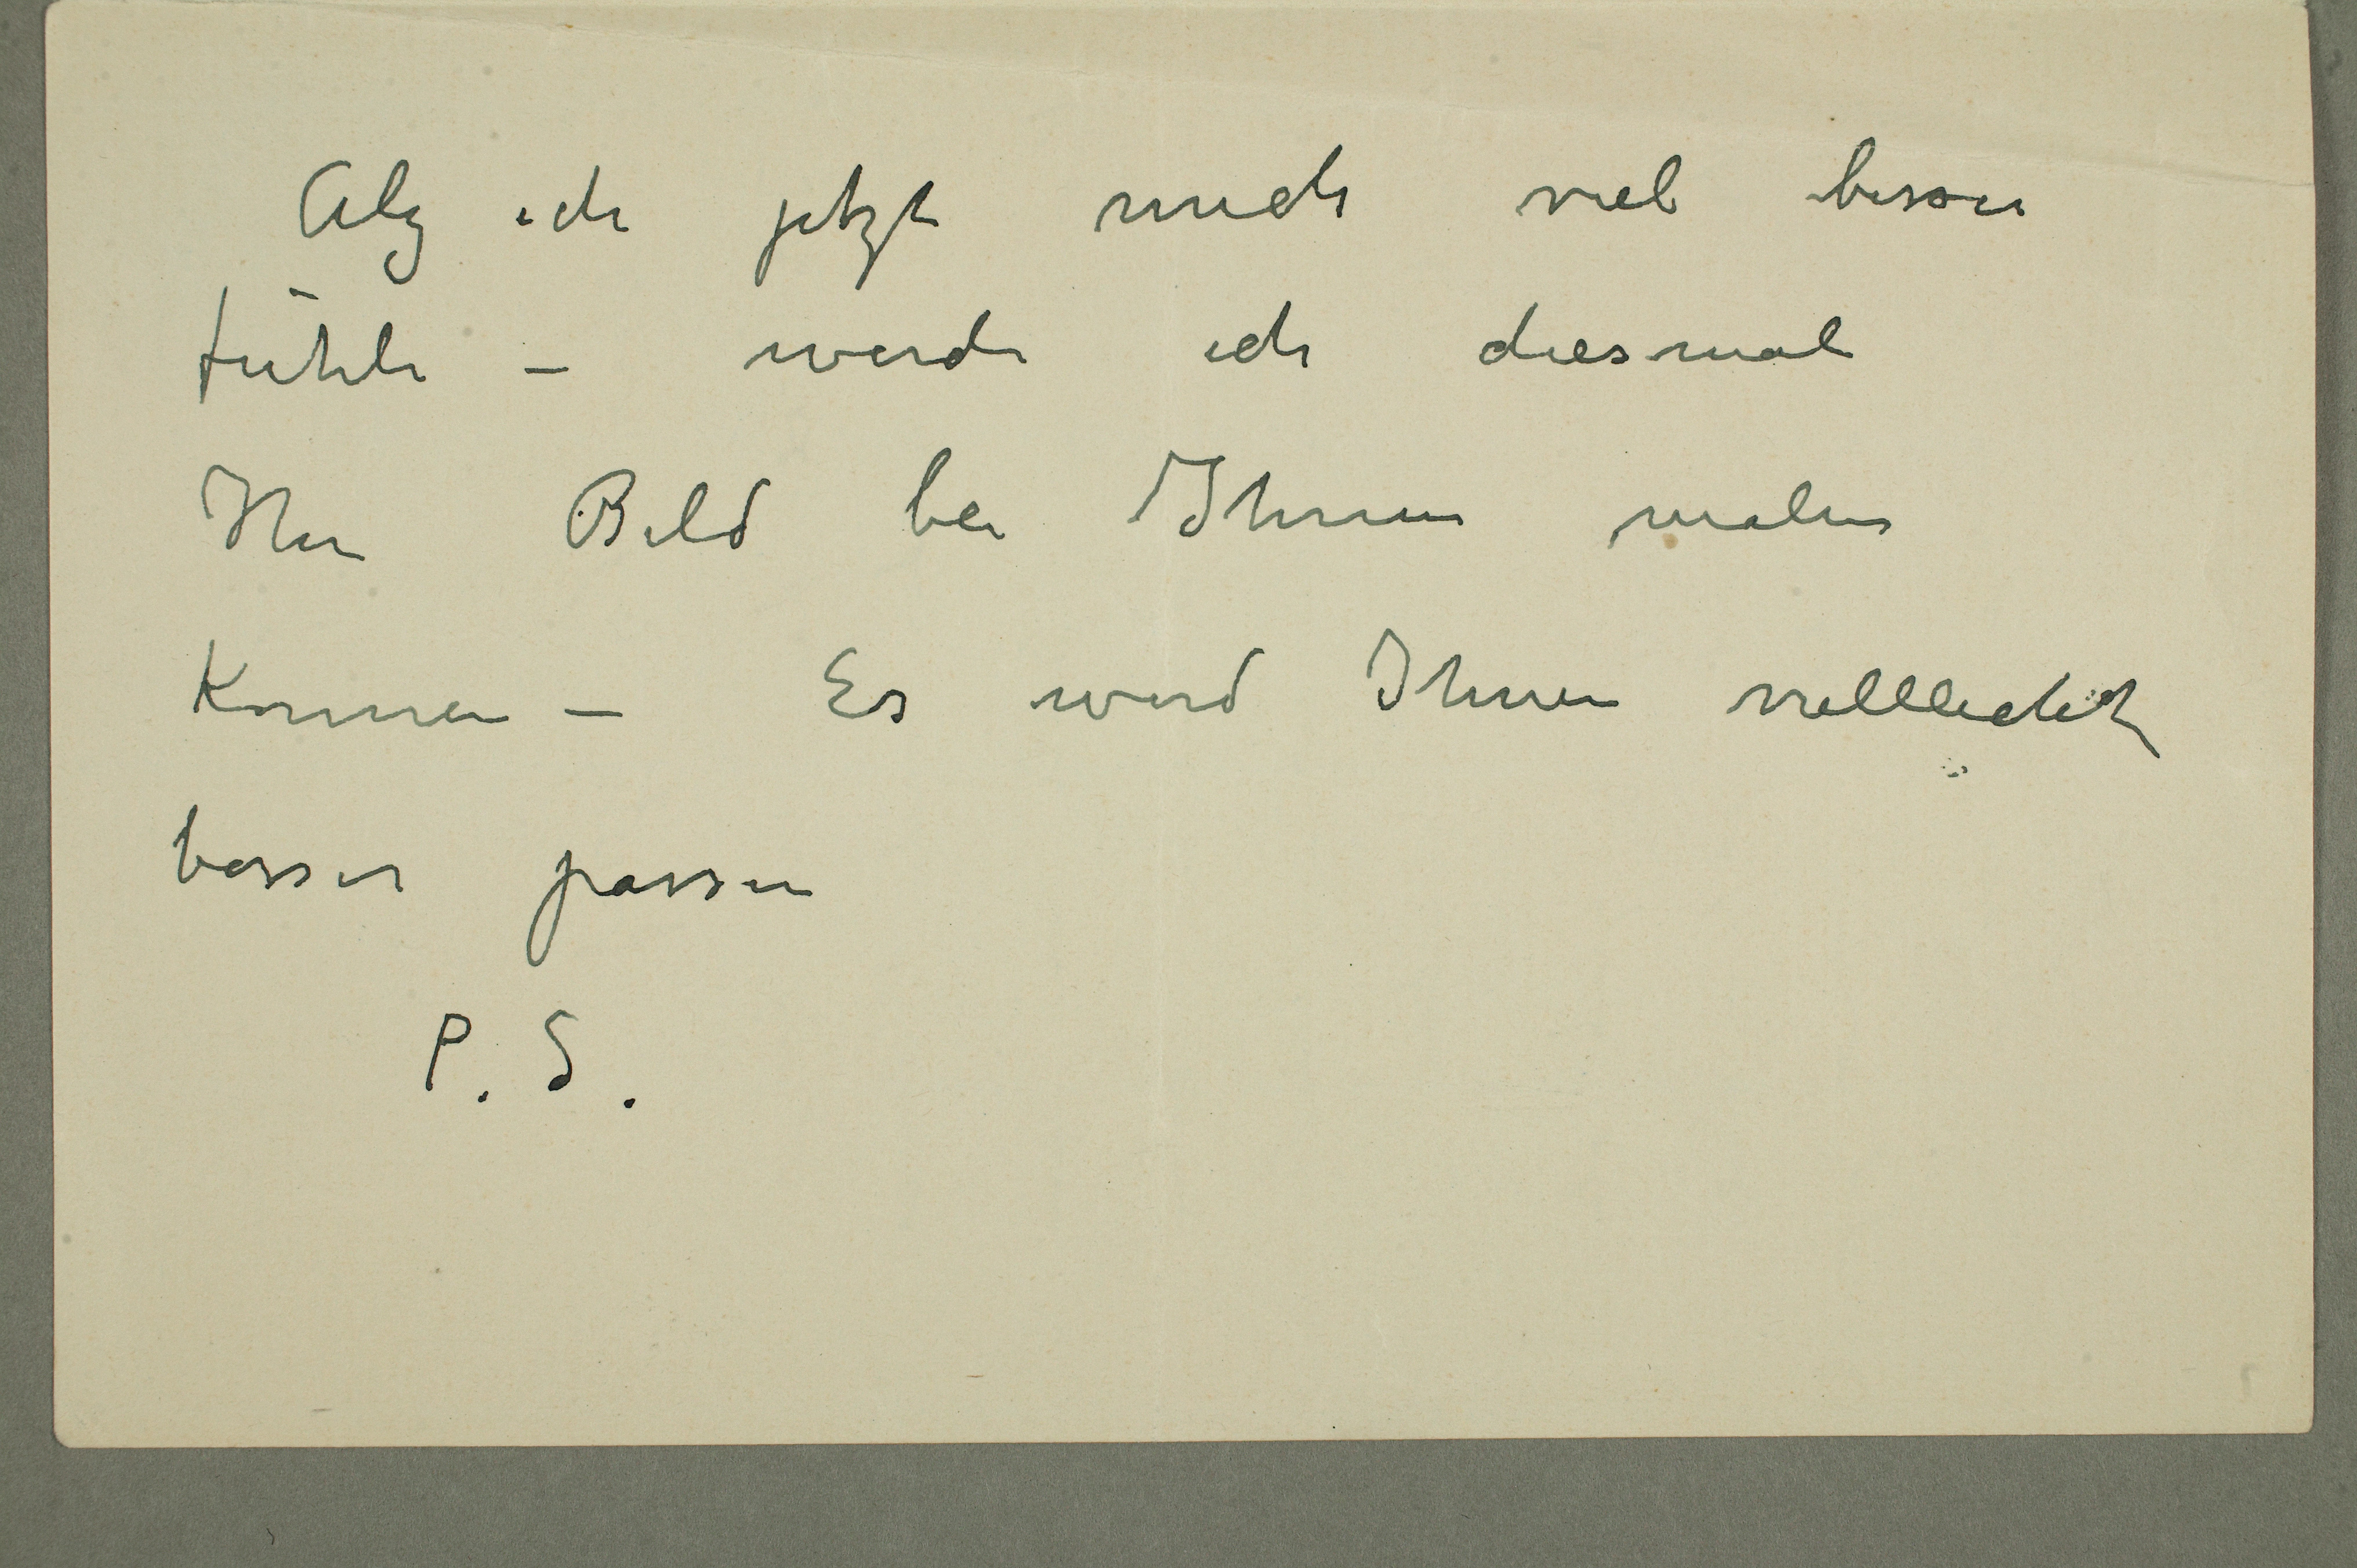 Als ich jetzt mich viel besser
fühle – werde ich diesmal
Ihr Bild bei Ihnen malen
können – Es wird Ihnen vielleicht
besser passen
P. S.